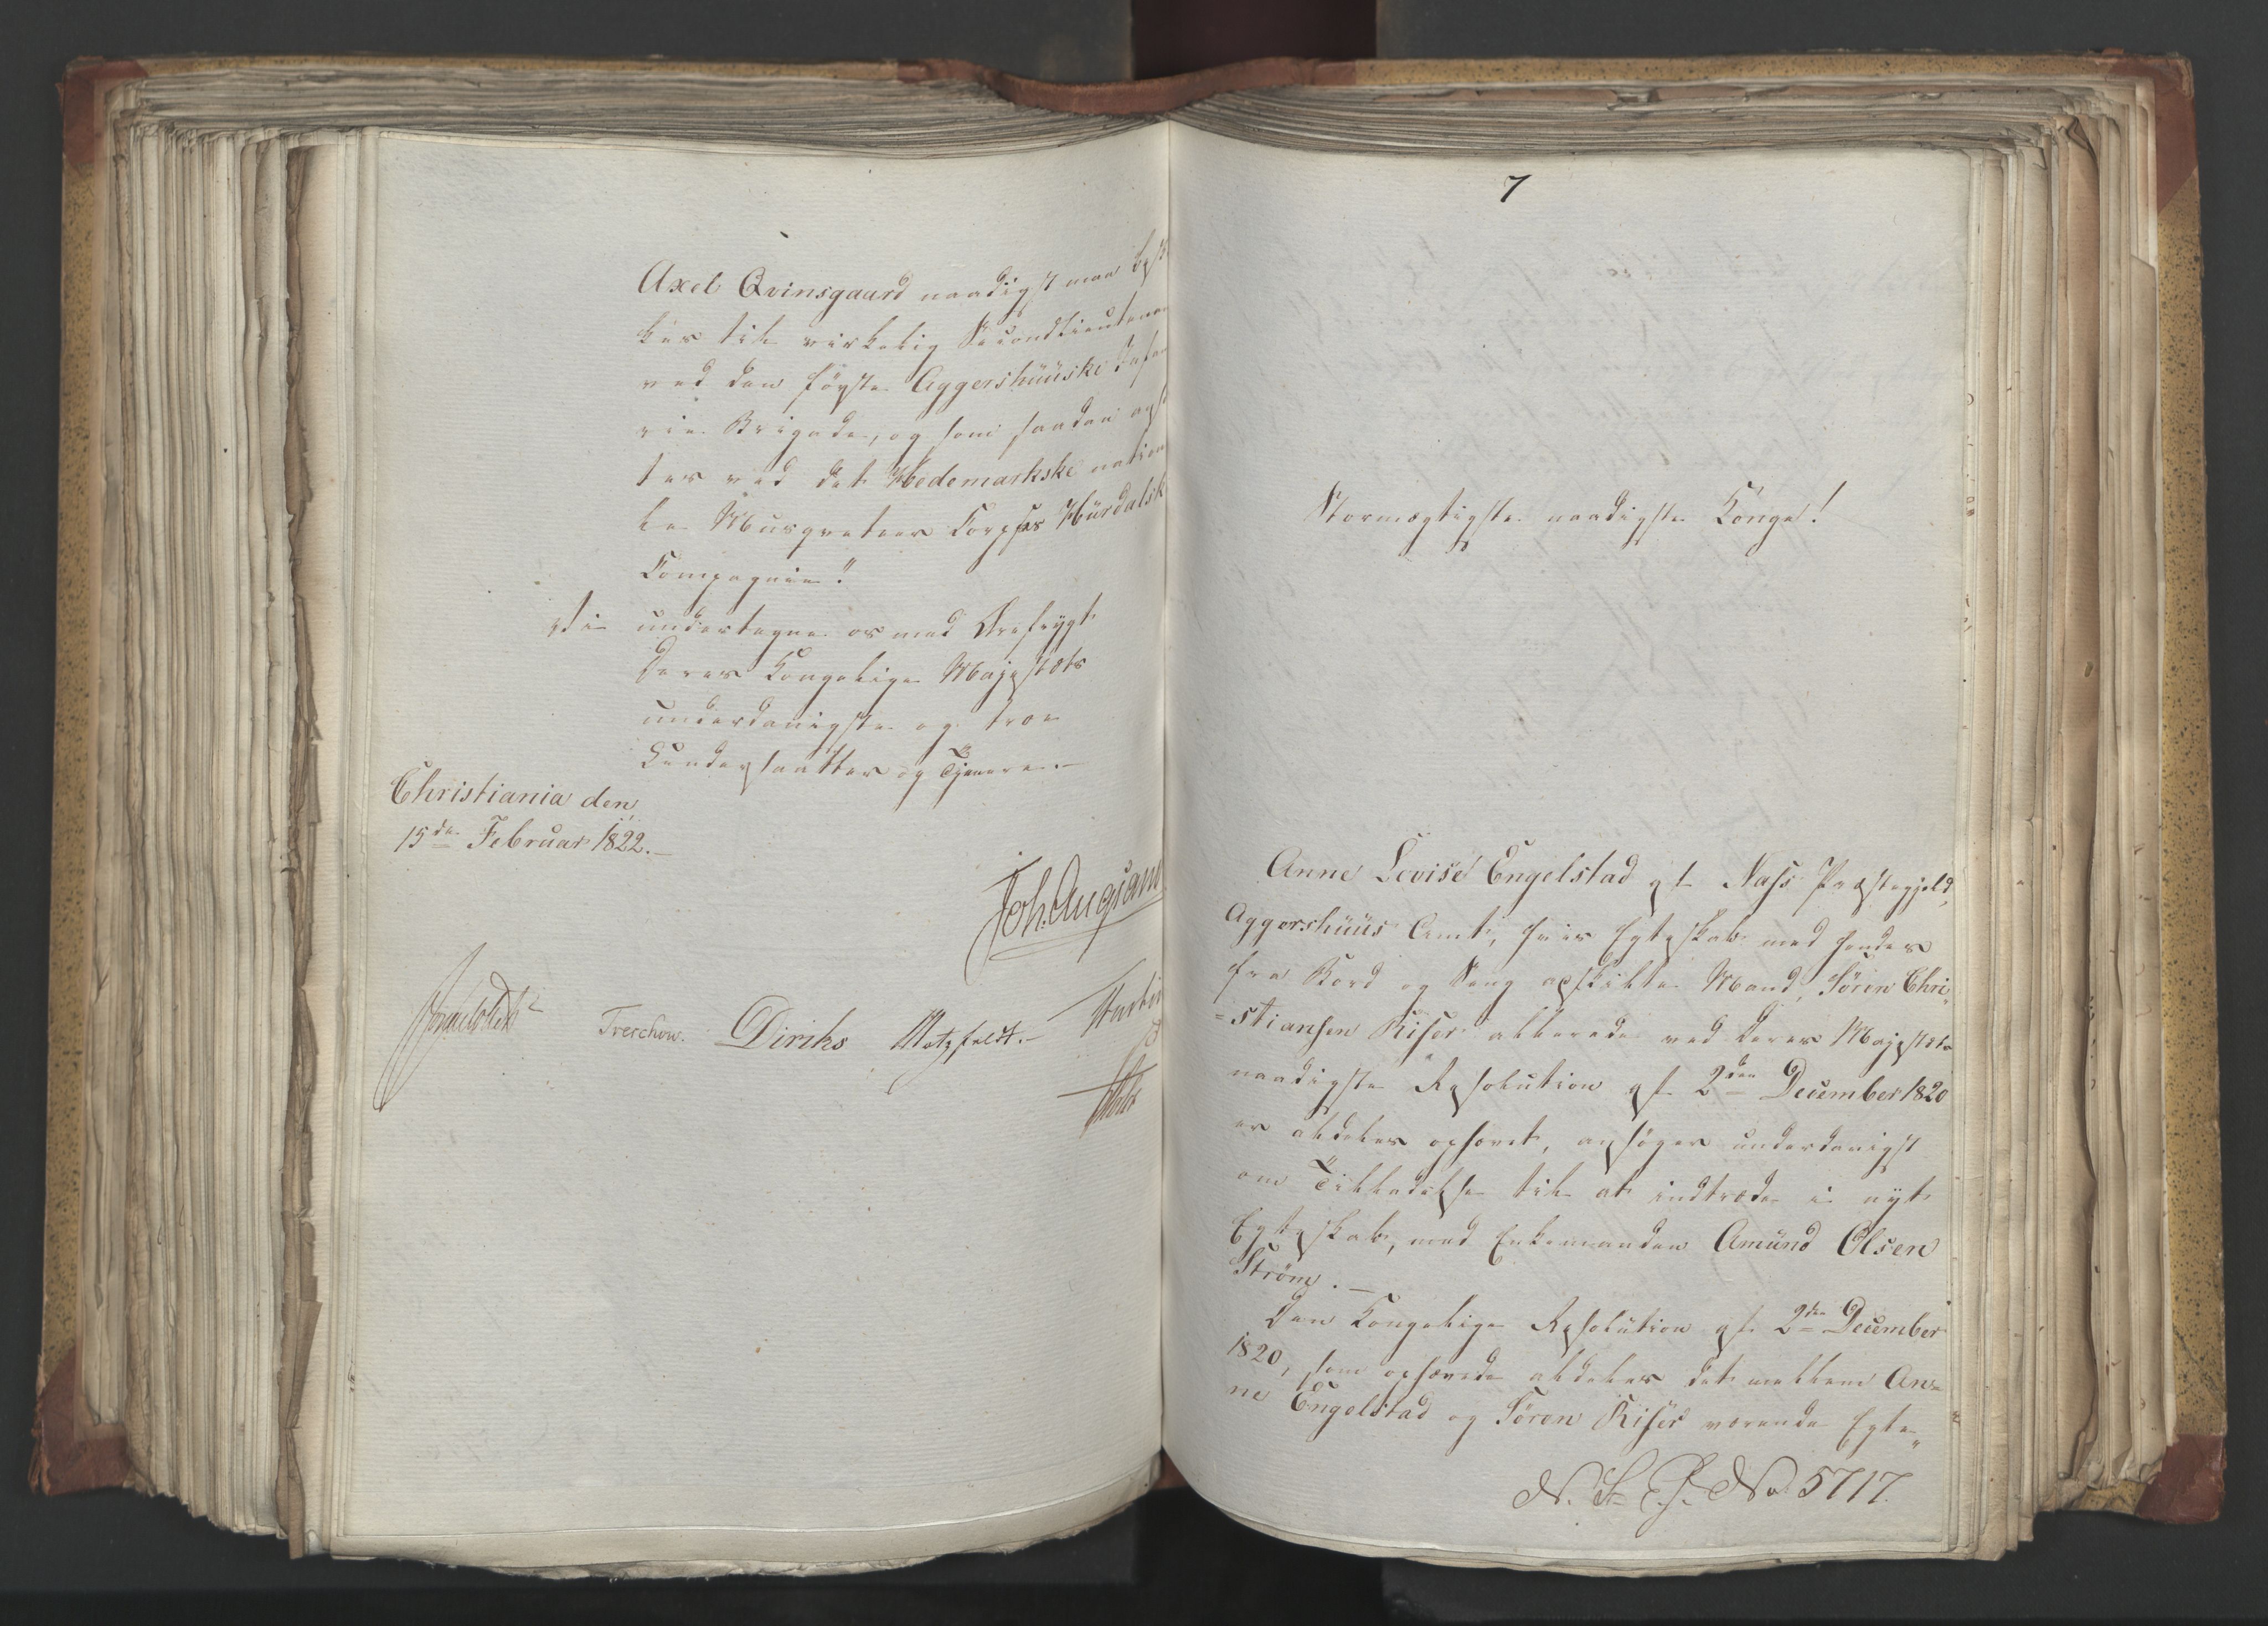 Axel Qvinsgaard naadigst maa besk
kes til virkelig Secondlieutenan
ved den første Aggershuuske Infan
rie Brigade, og som saadan ans
tes ved det Hedemarkske nation
le Musqueteer Corpses Hurdalsk
Compagnie."
Vi undertegne os med Ærefrygt
Deres Kongelige Majestæts
underdanigste og troe
Undersaatter og Tjenere.—
Christiania den
15de Februar 1822.—
Treschow. Diriks Motzfeldt.—
7
Stormægtigste naadigste Konge!
Anne Lovise Engelstad af Næss Præstegjeld,
Aggershuus Amt, hvis Egteskab med hendes
fra Bord og Seng adskilte Mand, Søren Chri-
=stiansen Risør allerede ved Deres Majestæts
naadigste Resolution af 2den December 1820
er aldeles ophævet, ansøger underdanigst
om Tilladelse til at indtræde i nyt
Egteskab, med Enkemanden Amund Olsen
Strøm.—
Den Kongelige Resolution af 2den December
1820, som ophævede aldeles det mellem An=
ne Engelstad og Søren Risør værende Egte-
No. 5717.